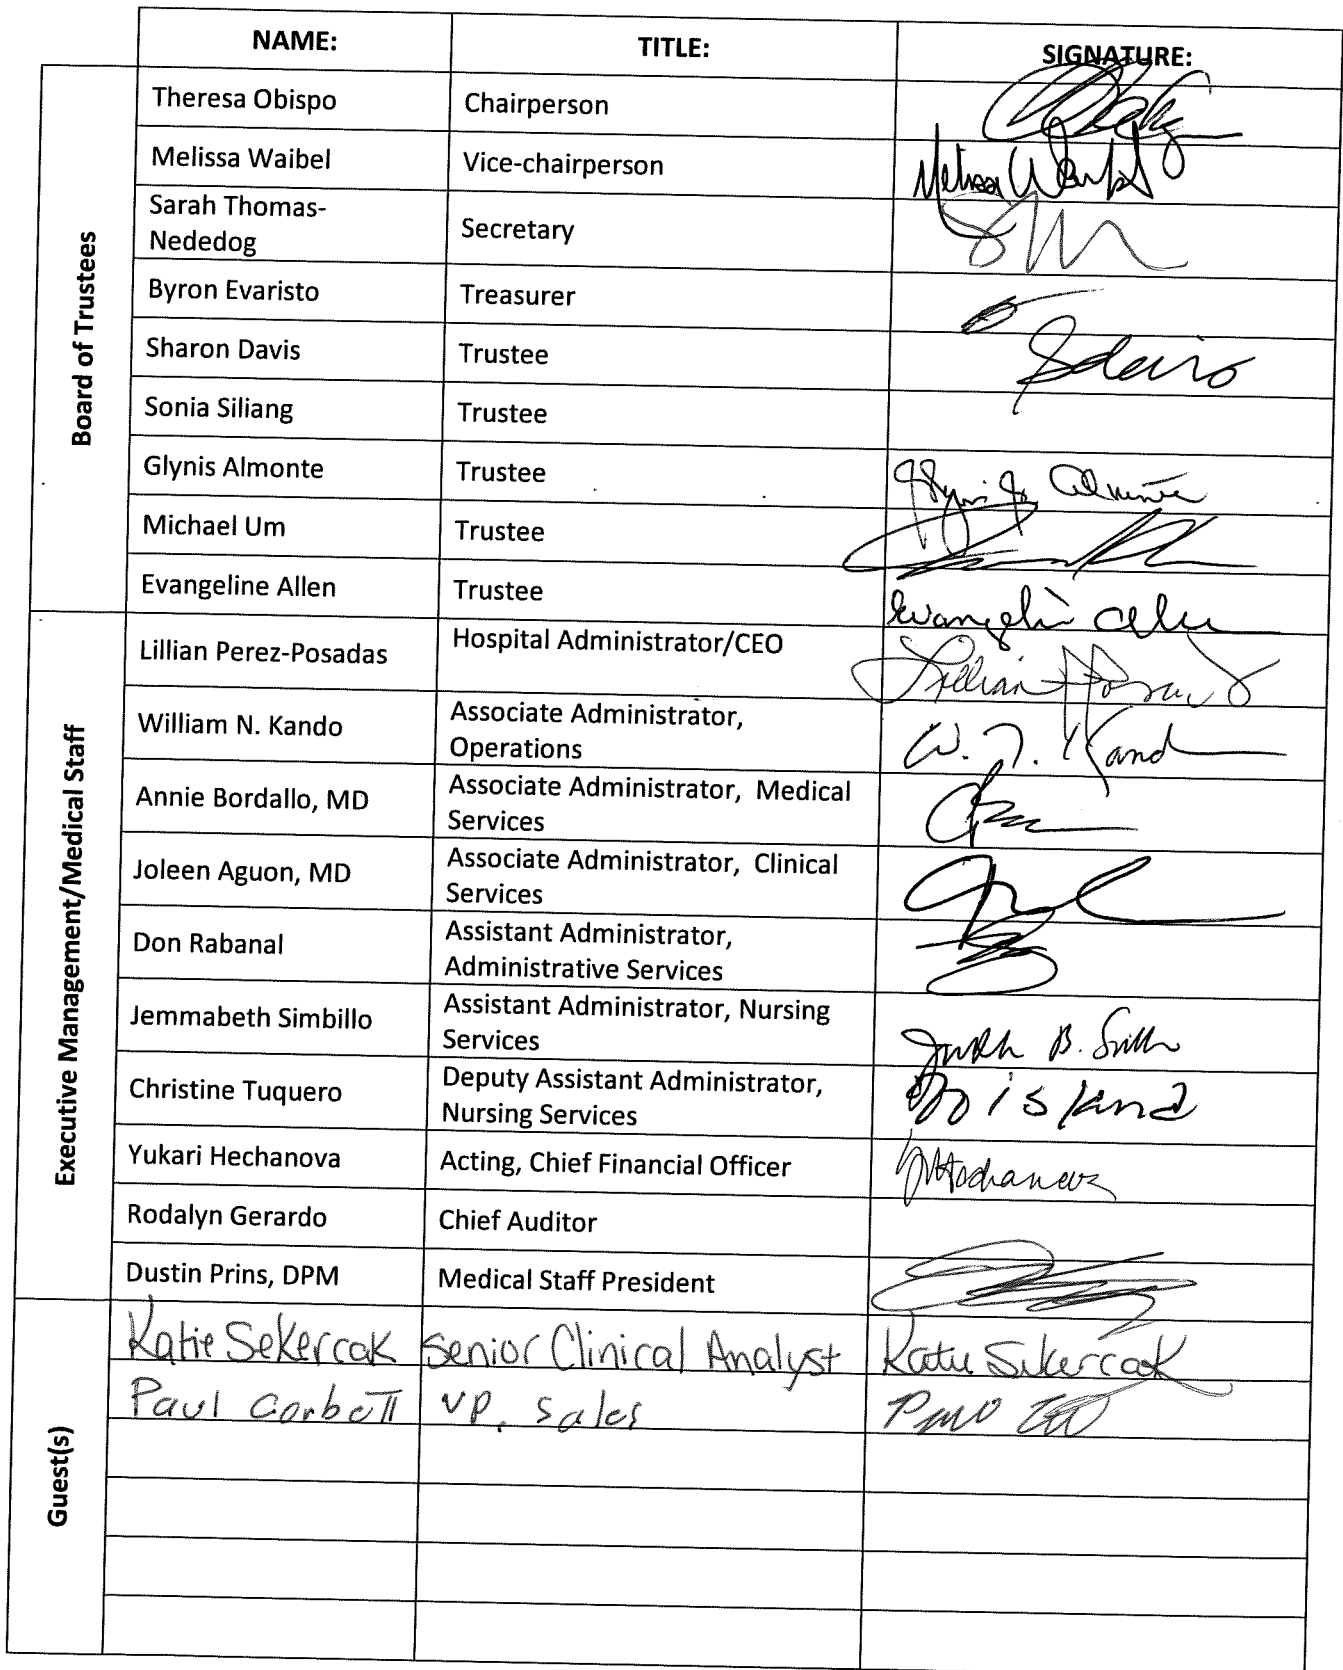 NAME: TITLE: SIGNATURE:
Board of Trustees
Theresa Obispo Chairperson
Melissa Waibel Vice-chairperson Melissa Waibel
Sarah Thomas-
Nededog Secretary
Byron Evaristo Treasurer
Sharon Davis Trustee SDavis
Sonia Siliang Trustee
Glynis Almonte Trustee Glynis Almonte
Michael Um Trustee
Evangeline Allen Trustee Evangeline Allen
Executive Management/Medical Staff
Lillian Perez-Posadas Hospital Administrator/CEO Lillian
William N. Kando Associate Administrator,
Operations W. N. Kando
Annie Bordallo, MD Associate Administrator, Medical
Services
Joleen Aguon, MD Associate Administrator, Clinical
Services
Don Rabanal Assistant Administrator,
Administrative Services
Jemmabeth Simbillo Assistant Administrator, Nursing
Services B.
Christine Tuquero Deputy Assistant Administrator,
Nursing Services
Yukari Hechanova Acting, Chief Financial Officer YHechanova
Rodalyn Gerardo Chief Auditor
Dustin Prins, DPM Medical Staff President
Guest(s)
Katie Sekercak Senior Clinical Analyst Katie Sekercak
Paul Corbett VP. Sales